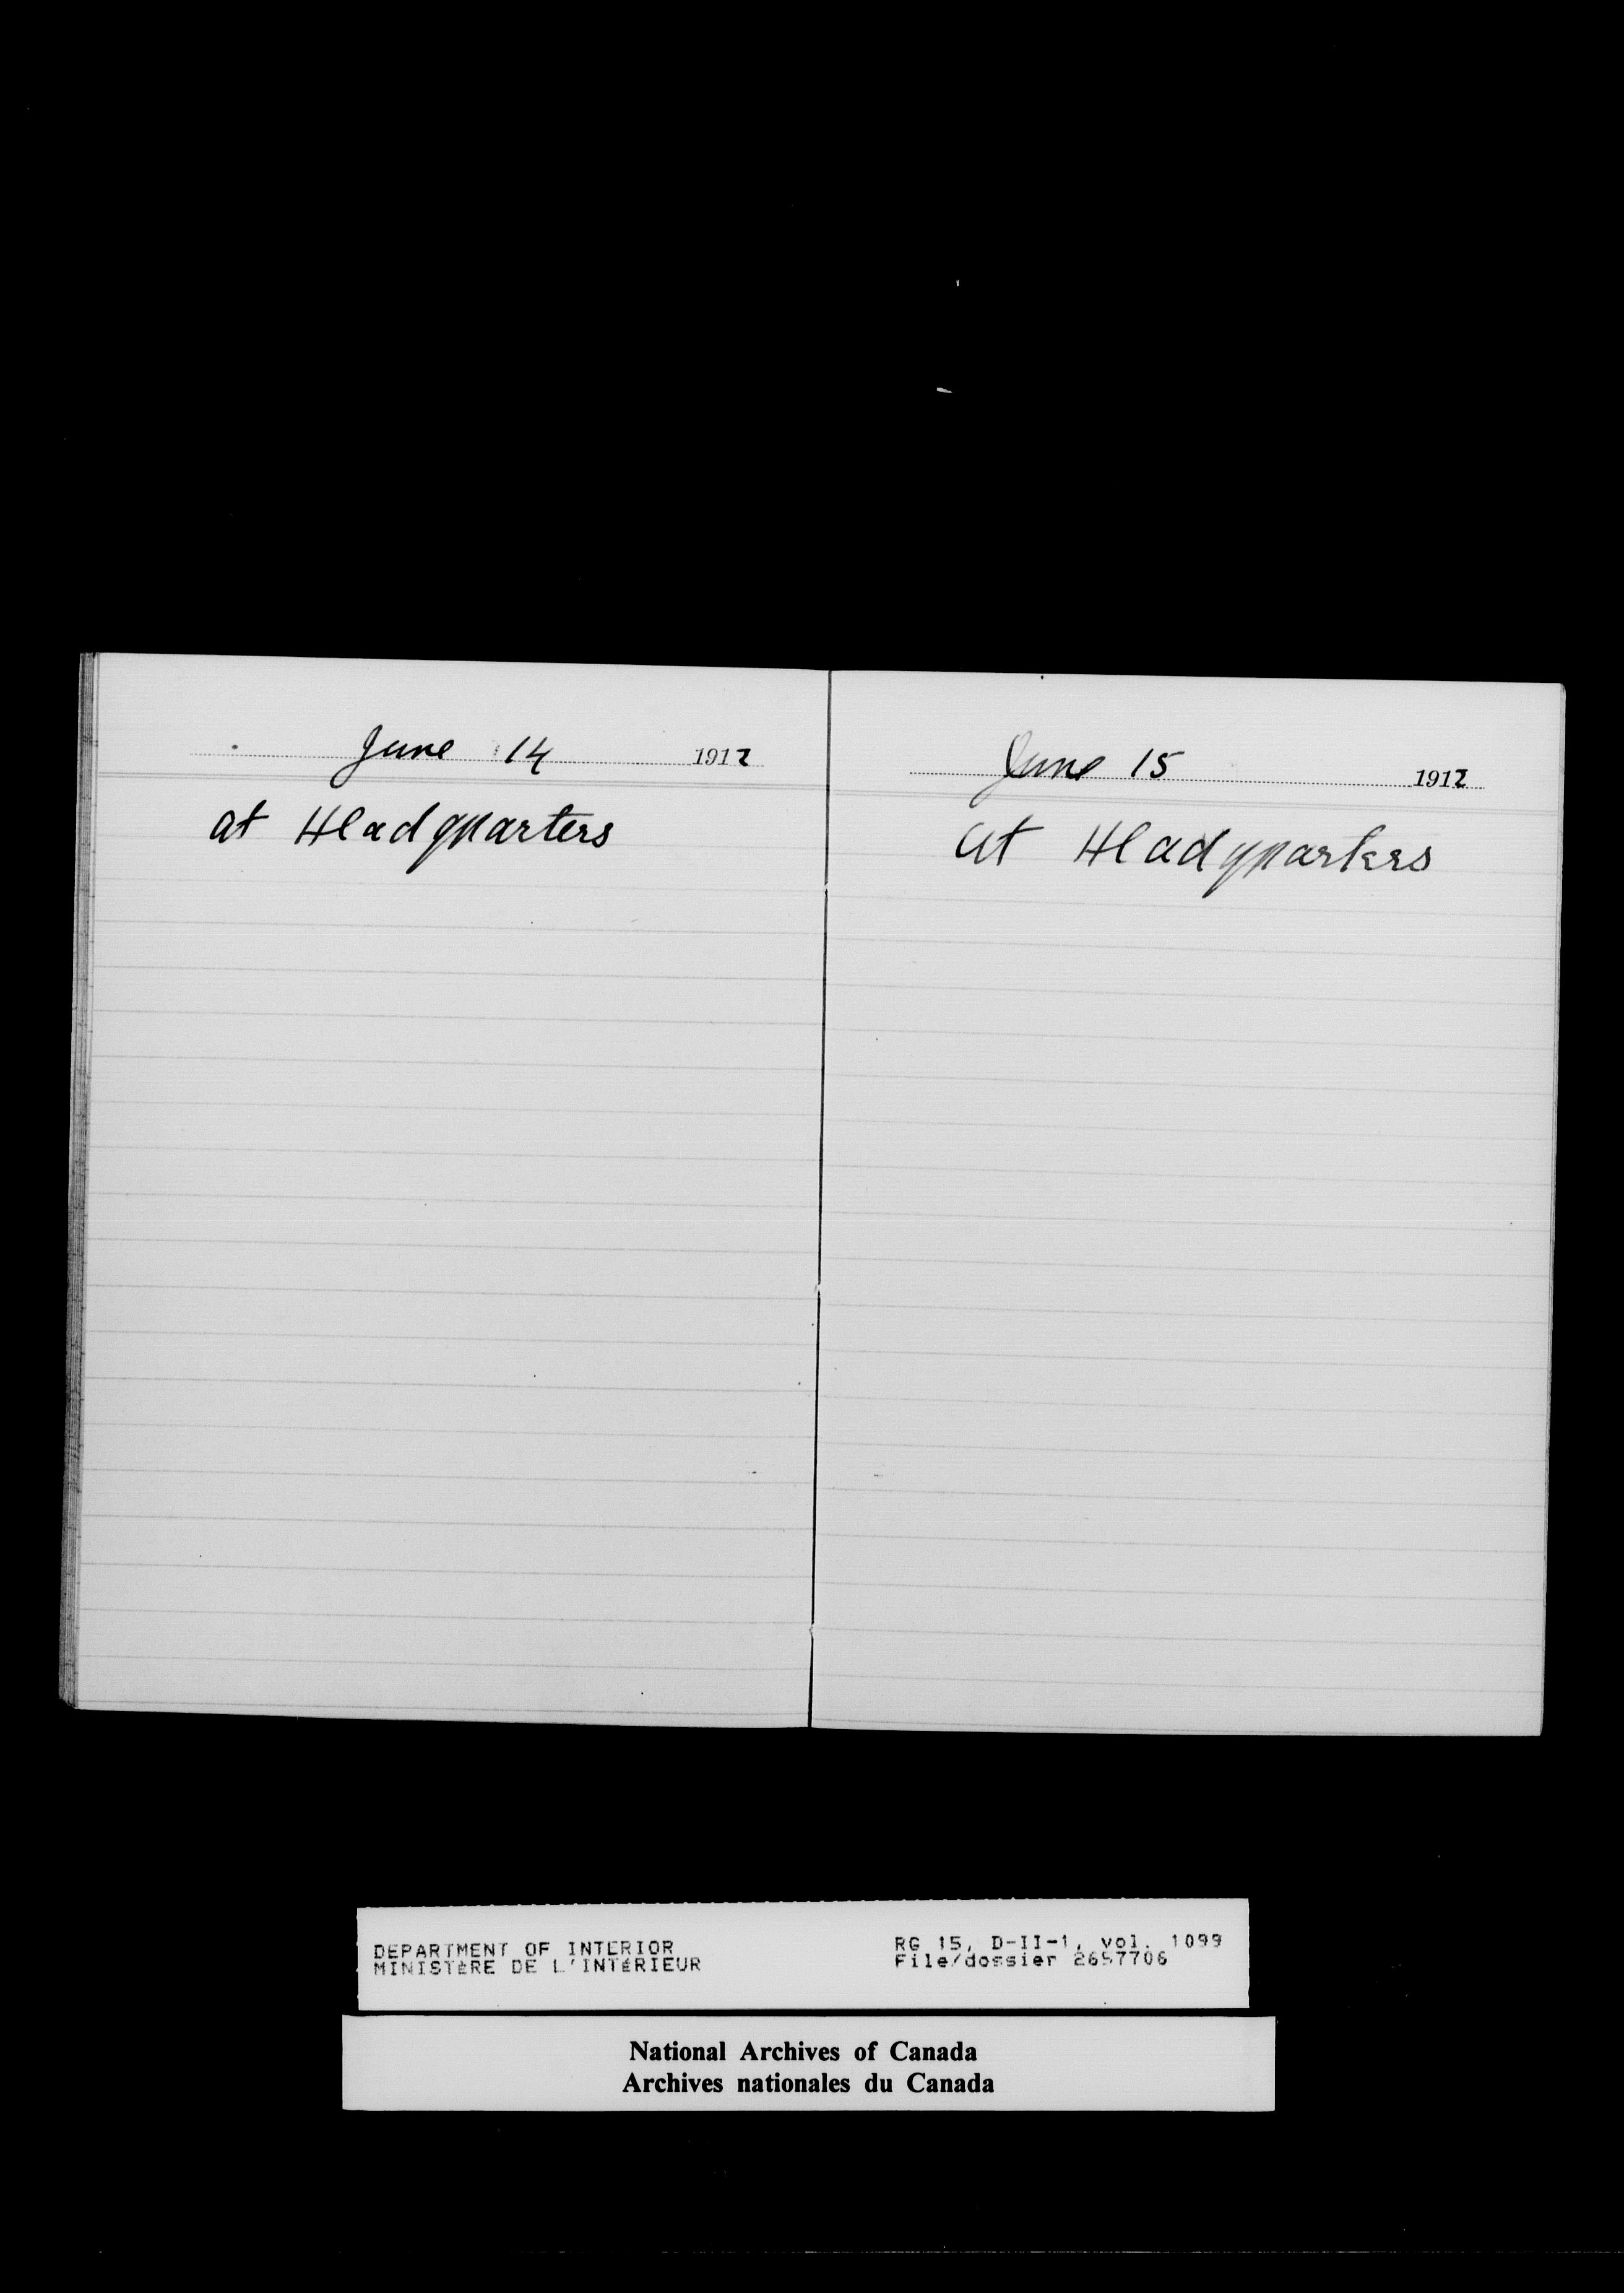 June 14 1912
at Headquarters
June 15 1912
at Headquarters
DEPARTMENT OF INTERIOR
MINISTÈRE DE L'INTÉRIEUR
RG 15, D-II-1, vol. 1099
File/dossier 2657706
National Archives of Canada
Archives nationales du Canada